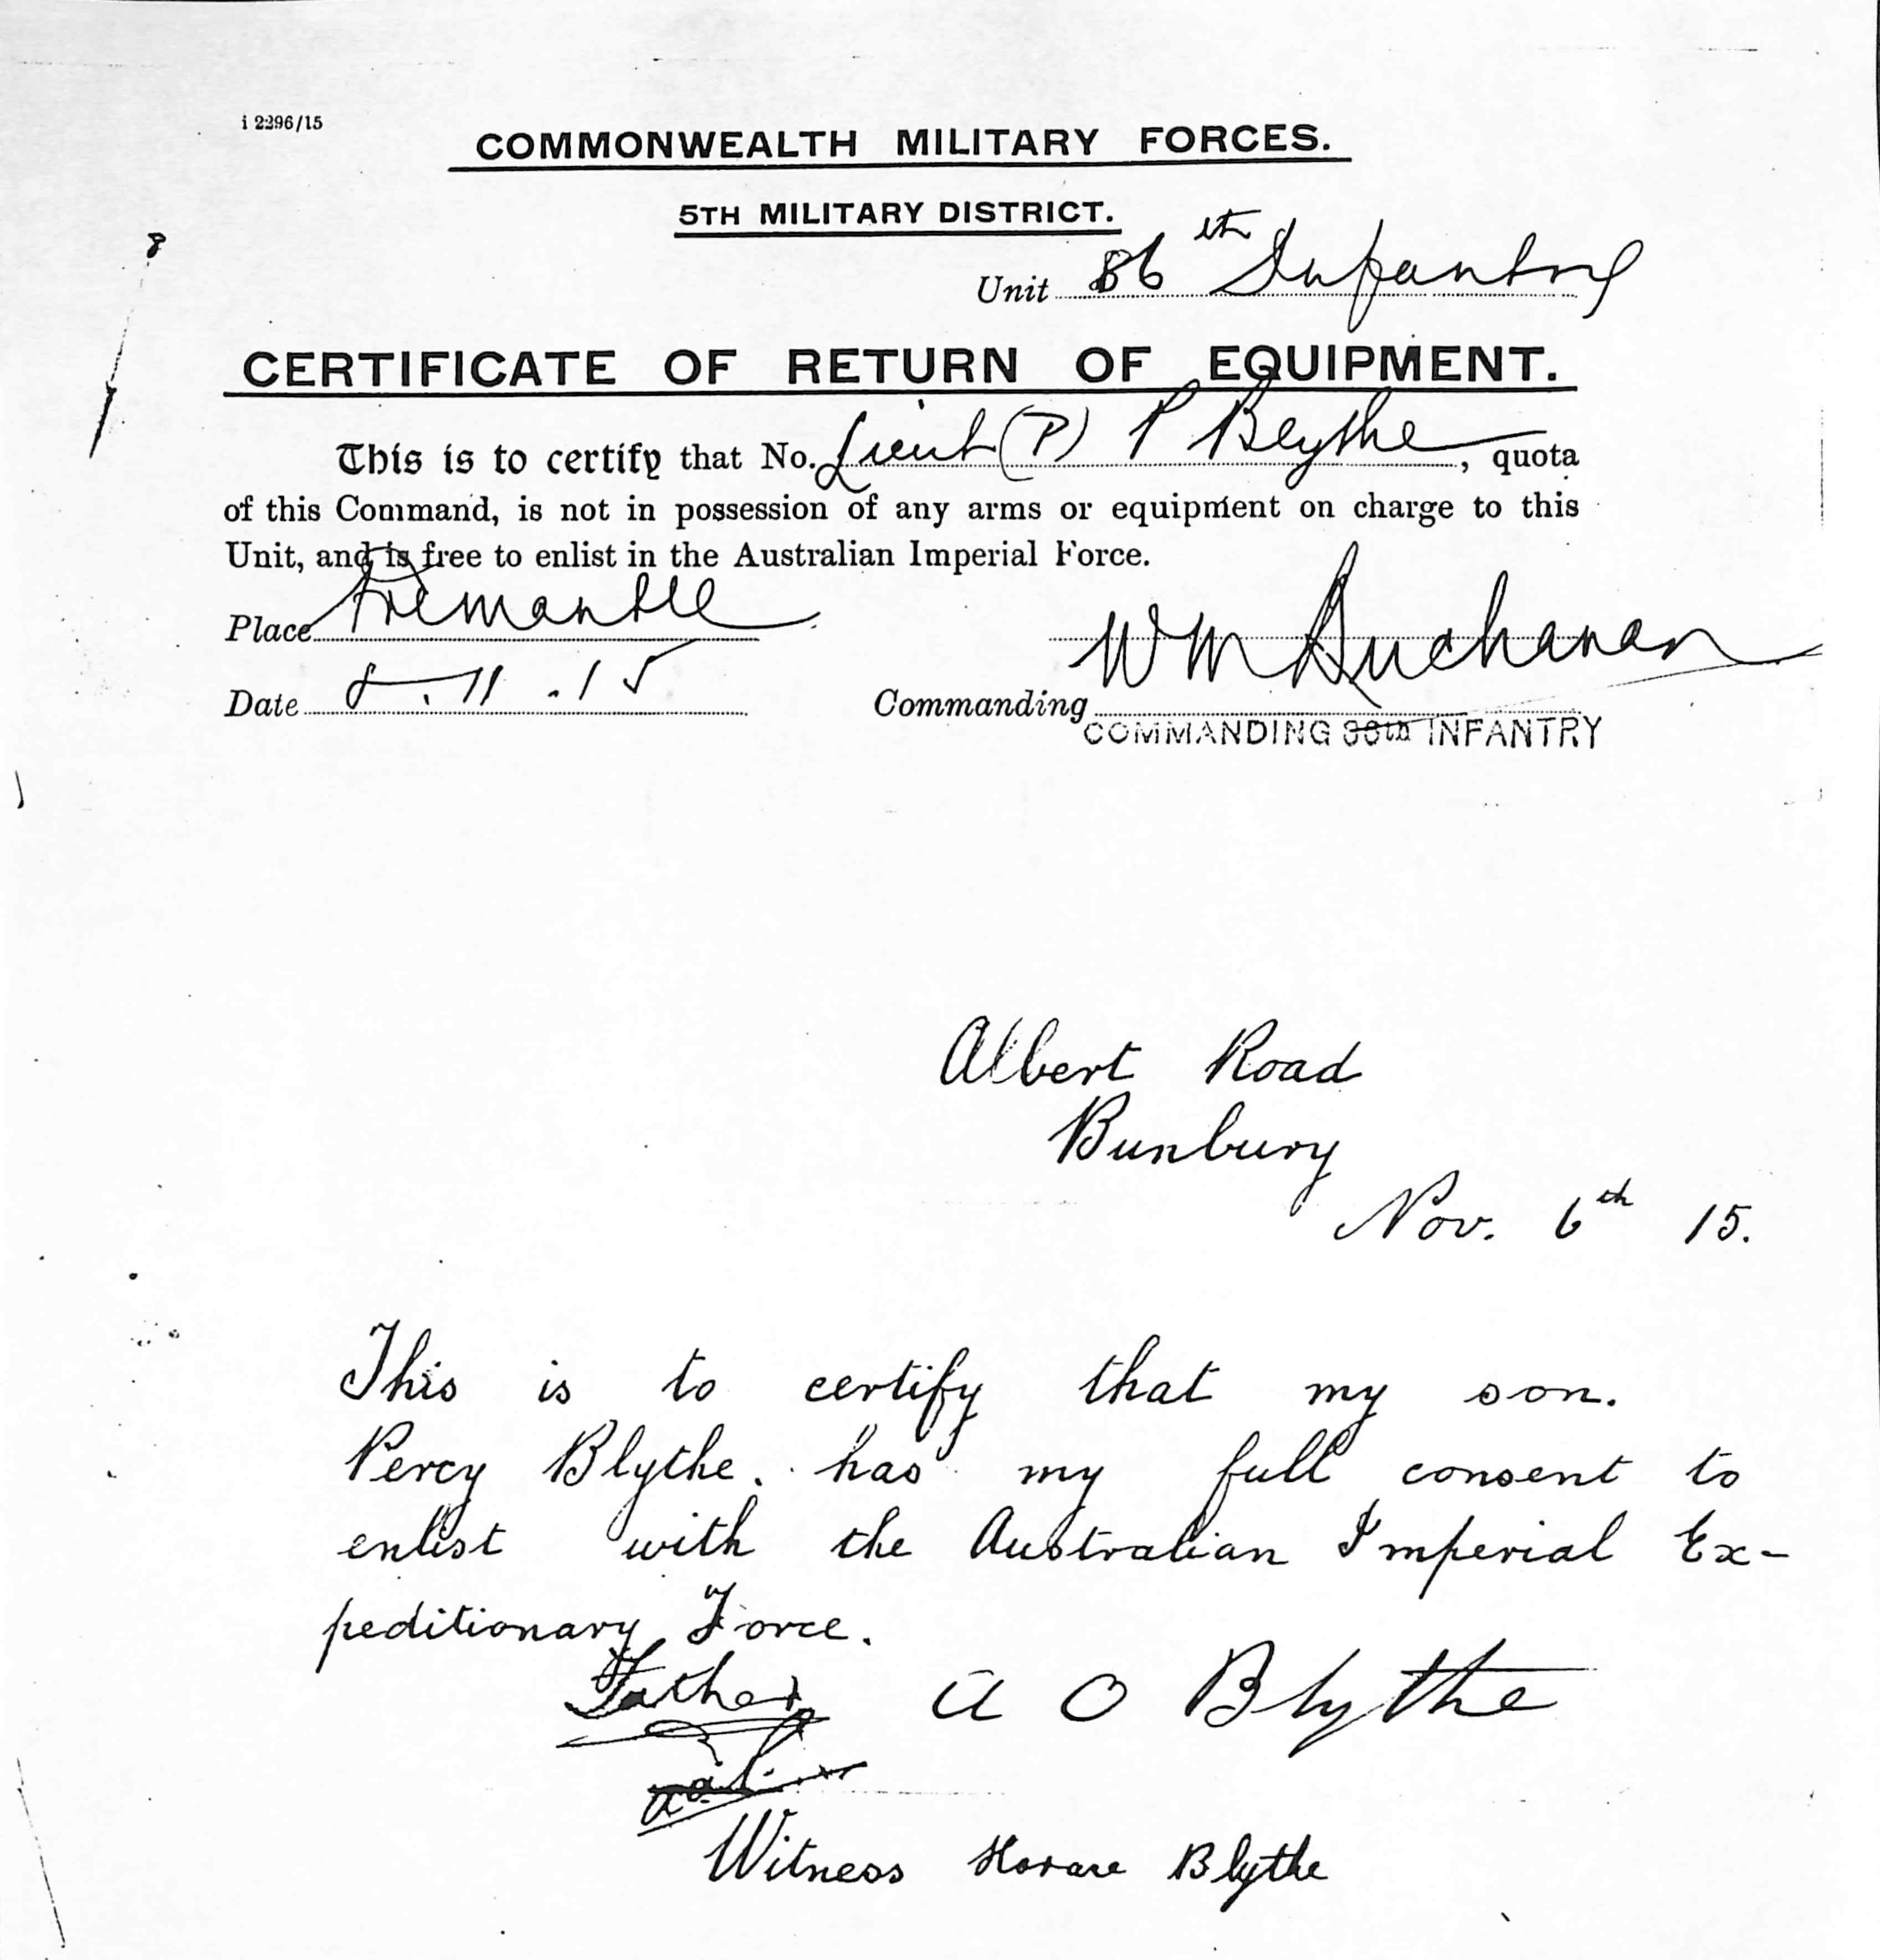 i 2296/15
COMMONWEALTH MILITARY FORCES.
5TH MILITARY DISTRICT.
Unit 86th Infantry
CERTIFICATE OF RETURN OF EQUIPMENT.
This is to certify that No. Lieut (P) P Blythe, quota
of this Command, is not in possession of any arms or equipment on charge to this
Unit, and is free to enlist in the Australian Imperial Force.
Place Fremantle
Wm Buchanan
Date 8.11.15
Commanding
COMMANDING INFANTRY
Albert Road
Bunbury
Nov. 6th 15.
This is to certify that my son.
Percy Blythe. has my full consent to
enlist with the Australian Imperial Ex-
peditionary Force.
Father A O Blythe
Witness Horace Blythe